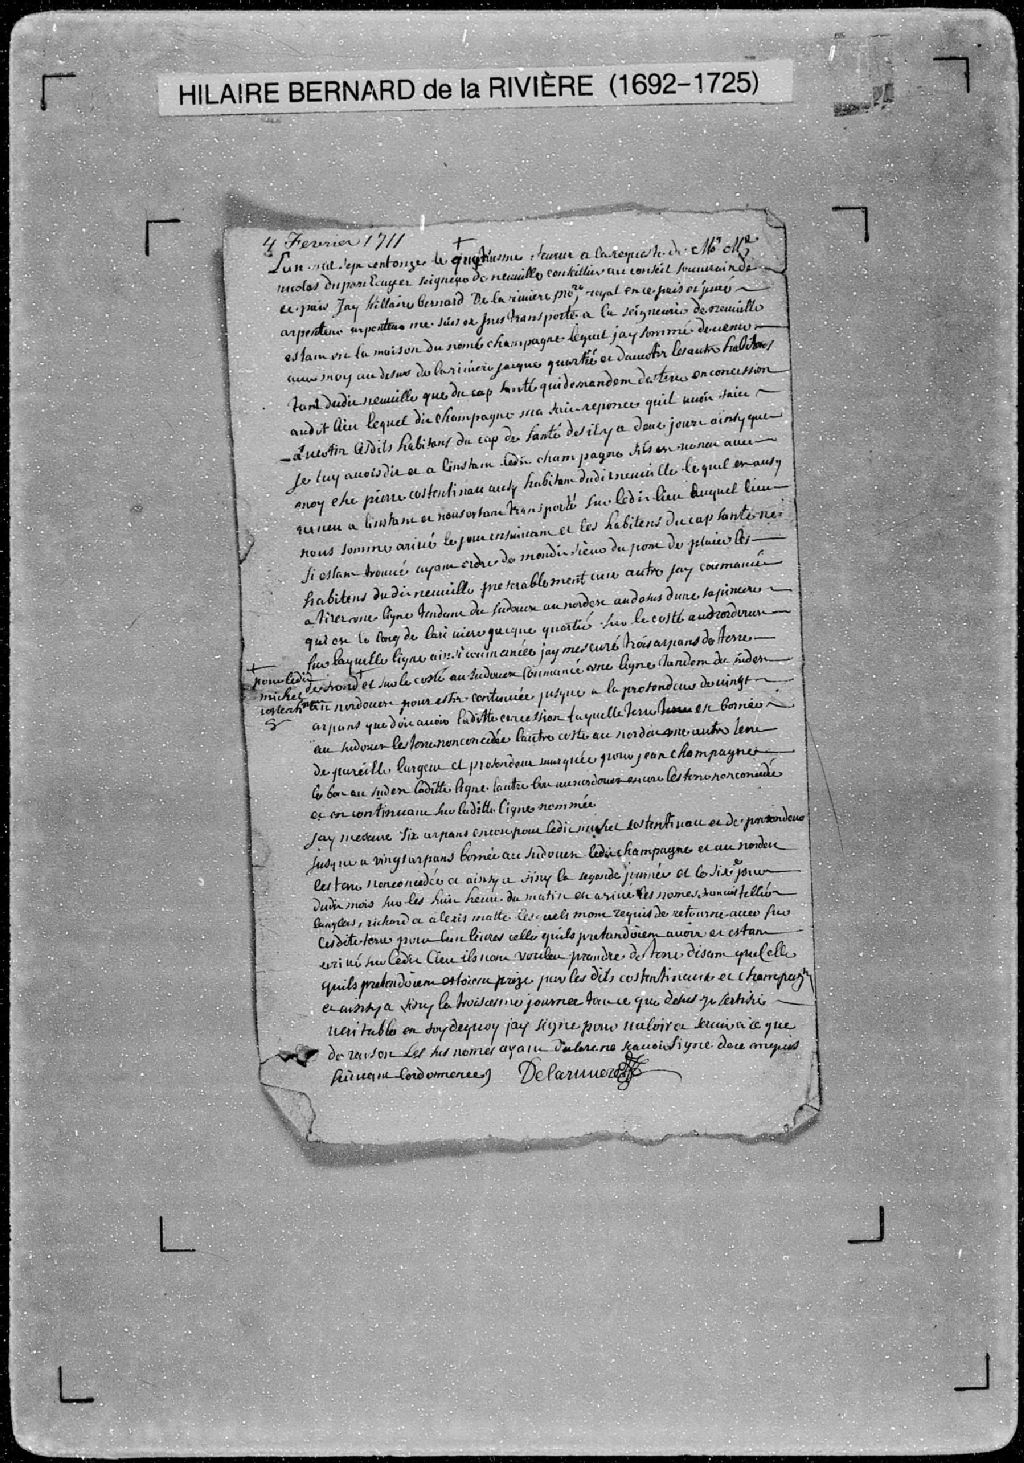 HILAIRE BERNARD de la RIVIÈRE (1692-1725)
4 Fevrier 1711
Lan mil sept cent onze le quatriesme fevrier a la requeste de Mre
nicolas dupont Ecuyer seigneur de neuville conseiller au conseil souverain de
ce pais Jay hillaire bernard De la riviere royal en ce pais et juré
arpenteur arpenteur me suis expres transporté a la seigneurie de neuville
estant en la maison du nomé champagne lequel jay sommé de venir
avec moy au desus de la riviere jacque quartié et davertir les autre habitans
tant dudit neuville que du cap santé qui demandent des terre en concession
audit lieu lequel dit champagne ma fait reponce quil avoit faire
avertir lesdits habitans du cap de santé des il y a deux jours ainsy que
je luy avois dit et a linstant ledit champagne sest en venu avec
moy et pierre costentineau aussy habitant dudit neuville lequel en ausy
venu a linstant et nous estant transporté sur ledit lieu auquel lieu
nous somme arivé le jour ensuivant et les habitens du cap santé ne
si estant trouvé ayant ordre de mondit sieur du pont de placer les
habitens du dit neuville preferablement aux autre jay coumancé
a tirer une ligne tendant du sudouest au nordest au desus dune sapiniere
qui est le long de la riviere jacque quartié sur le costé au nordouest
sur laquelle ligne ainsi coumancée jay mesuré trois arpans de terre
de front et sur le costé au sudouest coumancé une ligne tendant du sudest
au nordouest pour estre continuée jusque a la profondeur de vingt
arpans que doit avoir laditte concession laquelle terre est bornée
au sudouest les terre non concedée lautre costé au nordest une autre terre
de pareille largeur et profondeur marquée pour jean champagne
le bou au sudest laditte ligne lautre bou au nordouest encore les terre non concedée
et en continuant sur laditte ligne nommée
jay mesuré six arpans encore pour ledit michel costentineau et de profondeur
jusque a vingt arpans bornée au sudouest ledit champagne et au nordest
les terre non concedée et ainsy a finy la segonde journée et le six jour
dudit mois sur les huit heure du matin est arivé les només francois tellier
langlois, richard et alexis matte lesquels mont requis de retourner avec eux
lesdite terre pour leur livrer celle quils pretandoient avoir et estant
arivé sur ledit lieu ils nont voulu prendre de terre disant que celle
quils pretendoient estoient prise par les dits costentineau et champagne
et ainsy a finy la troisiesme journée tout ce que desus je certifie
veritable en foy de quoy jay signé pour valoir et servir a ce que
de raison les sus només ayant declaré ne scavoir signé de ce anquis
suivant lordonence
Delariviere
pour ledit
michel
costentineau